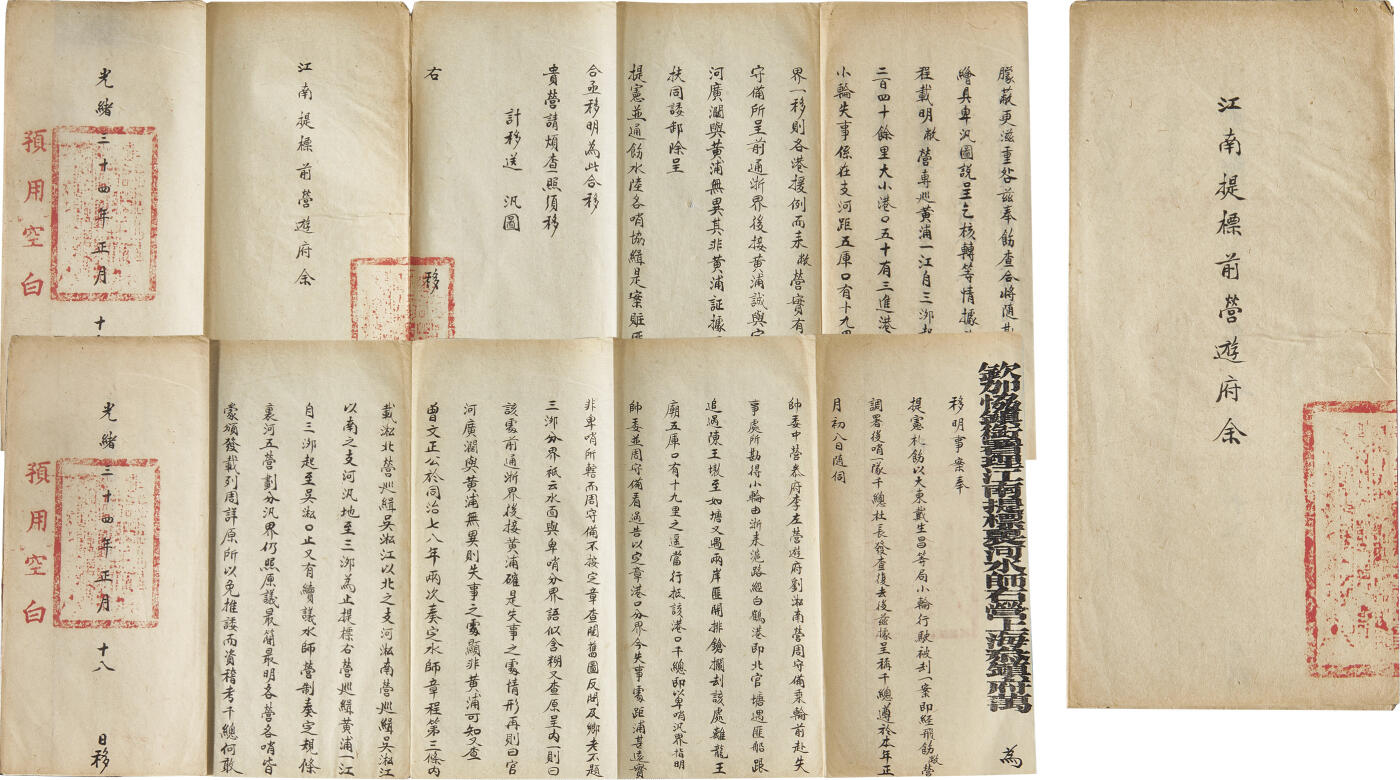 江南提標前營遊府余
欽加協鎮銜署理江南提標裏河水師右營上海鎮府萬 為
移明事案奉
提憲札飭以大東戴生昌等局小輪行駛被刦一案即經飛飭敝營
調署後哨一隊千總杜長發查復去後茲據呈稱千總遵於本年正
月初八日隨伺
帥委中營叅府李左營遊府劉淞南營周守備乘輪前赴失
事處所勘得小輪由浙來滬路經白鶴港即北官塘遇匪船跟
追過陳王墩至如塘又遇兩岸匪開排鎗攔刦該處離龍王
廟五庫口有十九里之遥當行抵該港口千總即以卑哨汎界指明
帥委並周守備看過告以定章港口分界今失事處距浦甚遠實
非卑哨所轄而周守備不按定章查閱舊圖反問及鄉老不題
三泖分界祇云水面與卑哨分界語似含糊又查原呈內一則曰
該處前通浙界後接黃浦確是失事之處情形再則曰官
河廣濶與黃浦無異則失事之處顯非黃浦可知又查
曾文正公於同治七八年兩次奏定水師章程第三條內
載淞北營巡緝吳淞江以北之支河淞南營巡緝吳淞江
以南之支河汎地至三泖為止提標右營巡緝黃浦一江
自三泖起至吳淞口止又有續議水師營制奏定規條
裏河五營劃分汎界仍照原議最簡最明各營各哨皆
蒙頒發載列周詳原所以免推諉而資稽考千總何敢
光緒三十四年正月 十八 日移
預用空白
朦蔽更滋重咎茲奉飭查合將隨勘
繪具卑汎圖說呈乞核轉等情據
程載明敝營專巡黃浦一江自三泖起
二百四十餘里大小港口五十有三進港
小輪失事係在支河距五庫口有十九里
界一移則各港援例而來敝營實有
守備所呈前通浙界後接黃浦誠與官
河廣濶與黃浦無異其非黃浦証據
扶同諉卸除呈
提憲並通飭水陸各哨協緝是案賍匪
合亟移明為此合移
貴營請煩查照須移
計移送 汎圖
右 移
江南提標前營遊府余
光緒三十四年正月 十
預用空白